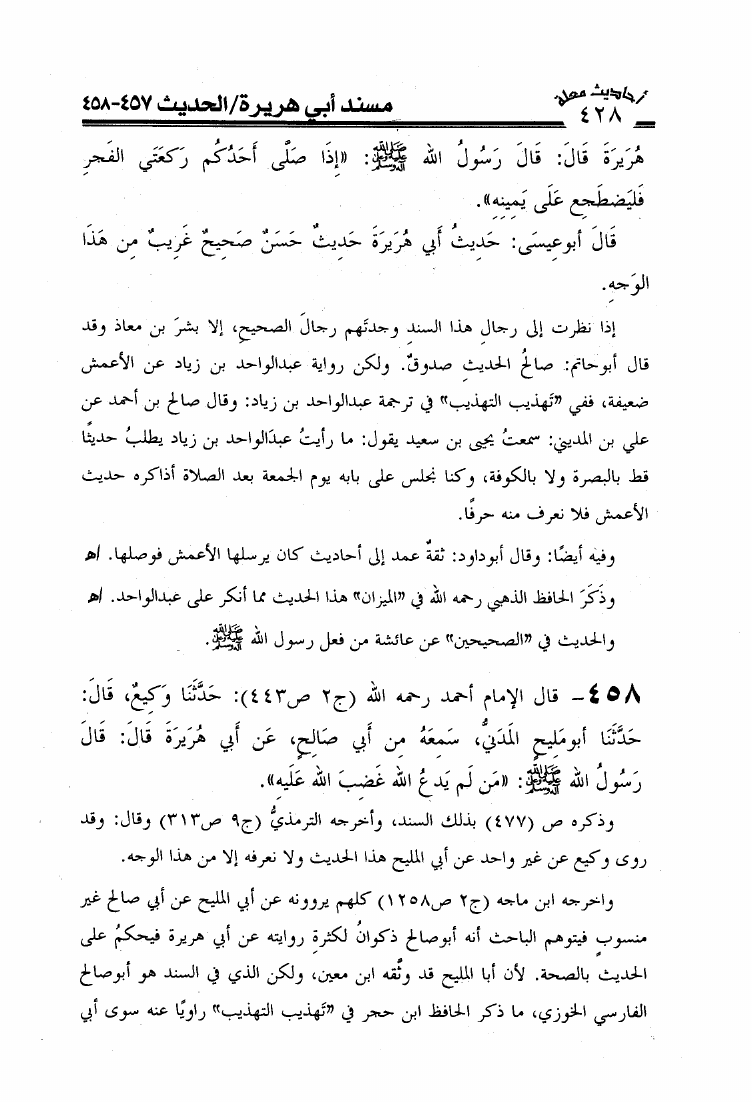 أحاديث معلة
٤٢٨
مسند أبي هريرة/الحديث ٤٥٧-٤٥٨
هُرَيرَةَ قَالَ: قَالَ رَسُولُ الله ﷺ: «إِذَا صَلَّى أَحَدُكُم رَكعَتَي الفَجرِ
فَليَضطَجِع عَلَى يَمِينِهِ».
قَالَ أبوعيسَى: حَدِيثُ أبي هُرَيرَةَ حَدِيثٌ حَسَنٌ صَحِيحٌ غَرِيبٌ مِن هَذَا
الوَجهِ.
إذا نظرت إلى رجالِ هذا السندِ وجدتَهم رجالَ الصحيحِ، إلا بشرَ بن معاذ وقد
قال أبوحاتم: صالحُ الحديثِ صدوقٌ. ولكن رواية عبدالواحد بن زياد عن الأعمش
ضعيفة، ففي "تهذيب التهذيب" في ترجمة عبدالواحد بن زياد: وقال صالح بن أحمد عن
علي بن المديني: سمعتُ يحيى بن سعيد يقول: ما رأيتُ عبدَالواحد بن زياد يطلبُ حديثًا
قط بالبصرة ولا بالكوفة، وكنا نجلس على بابه يوم الجمعة بعد الصلاة أذاكره حديث
الأعمش فلا نعرف منه حرفًا.
وفيه أيضًا: وقال أبوداود: ثقةٌ عمد إلى أحاديث كان يرسلها الأعمش فوصلها. اﻫ
وذكَرَ الحافظ الذهبي رحمه الله في "الميزان" هذا الحديث مما أنكر على عبدالواحد. اﻫ
والحديث في "الصحيحين" عن عائشة من فعل رسول الله ﷺ.
٤٥٨- قال الإمام أحمد رحمه الله (ج٢ ص٤٤٣): حَدَّثَنَا وَكِيعٌ، قَالَ:
حَدَّثَنَا أبومَلِيحٍ المَدَنيُّ، سَمِعَهُ مِن أبي صَالِحٍ، عَن أَبي هُرَيرَةَ قَالَ: قَالَ
رَسُولُ الله ﷺ: «مَن لَم يَدعُ الله غَضِبَ الله عَلَيهِ».
وذكره ص (٤٧٧) بذلك السند، وأخرجه الترمذيُّ (ج٩ ص٣١٣) وقال: وقد
روى وكيع عن غير واحد عن أبي المليح هذا الحديث ولا نعرفه إلا من هذا الوجه.
واخرجه ابن ماجه (ج٢ ص١٢٥٨) كلهم يروونه عن أبي المليح عن أبي صالح غير
منسوبٍ فيتوهم الباحث أنه أبوصالح ذكوانُ لكثرةِ روايته عن أبي هريرة فيحكمُ على
الحديث بالصحة. لأن أبا المليح قد وثَّقه ابن معين، ولكن الذي في السند هو أبوصالح
الفارسي الخوزي، ما ذكر الحافظ ابن حجر في "تهذيب التهذيب" راويًا عنه سوى أبي